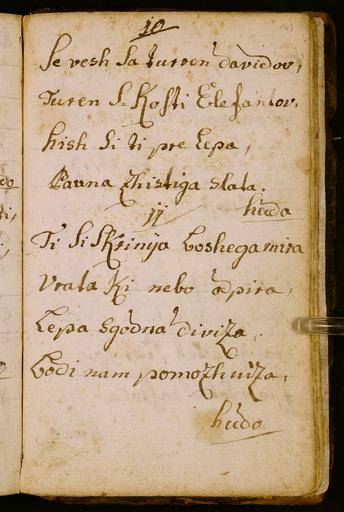 10
Se vesh Sa turren davidov,
Turen S. Kosti Elefantov,
hish Si ti pre lepa,
Pauna Zhistiga slata.
huda
11
Ti Si Skrinija Boshega mira
Vrata Ki nebo odpira,
Lepa sgodna diviza,
Bodi nam pomozhniza,
hudo